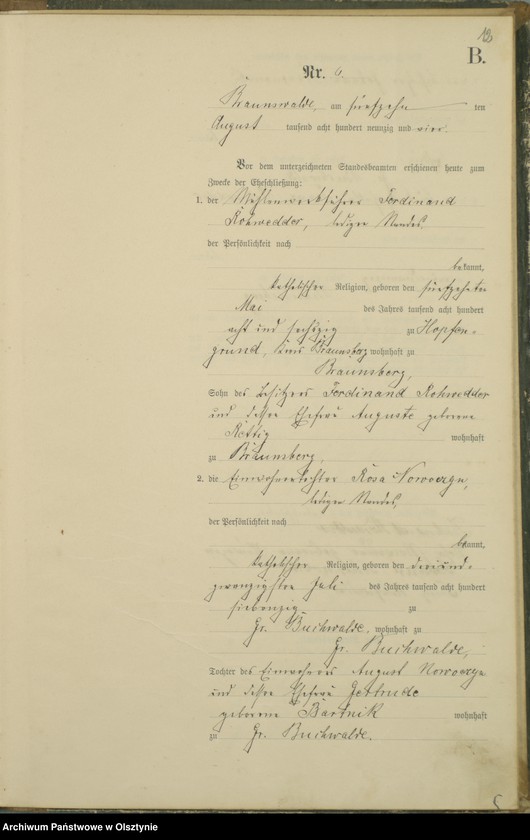 12
B.
Nr. 6.
Braunswalde, am fünfzehn ten
August tausend acht hundert neunzig und vier.
Vor dem unterzeichneten Standesbeamten erschienen heute zum
Zwecke der Eheschließung:
1. der Mühlenwerkführer Ferdinand
Rohwedder, ledigen Standes,
der Persönlichkeit nach
bekannt,
katholischer Religion, geboren den fünfzehnten
Mai des Jahres tausend acht hundert
acht und sechzig zu Hopfen-
grund, Kreis Braunsberg wohnhaft zu
Braunsberg,
Sohn des Besitzers Ferdinand Rohwedder
und dessen Ehefrau Auguste geborene
Rettig wohnhaft
zu Braunsberg.
2. die Einwohnertochter Rosa
ledigen Standes,
der Persönlichkeit nach
bekannt,
katholischer Religion, geboren den dreiund-
zwanzigsten Juli des Jahres tausend acht hundert
siebenzig zu
Gr. Buchwalde, wohnhaft zu
Gr. Buchwalde,
Tochter des Einwohners August
und dessen Ehefrau Gertrude
geborene Bartnik wohnhaft
zu Gr. Buchwalde.
Archiwum Państwowe w Olsztynie